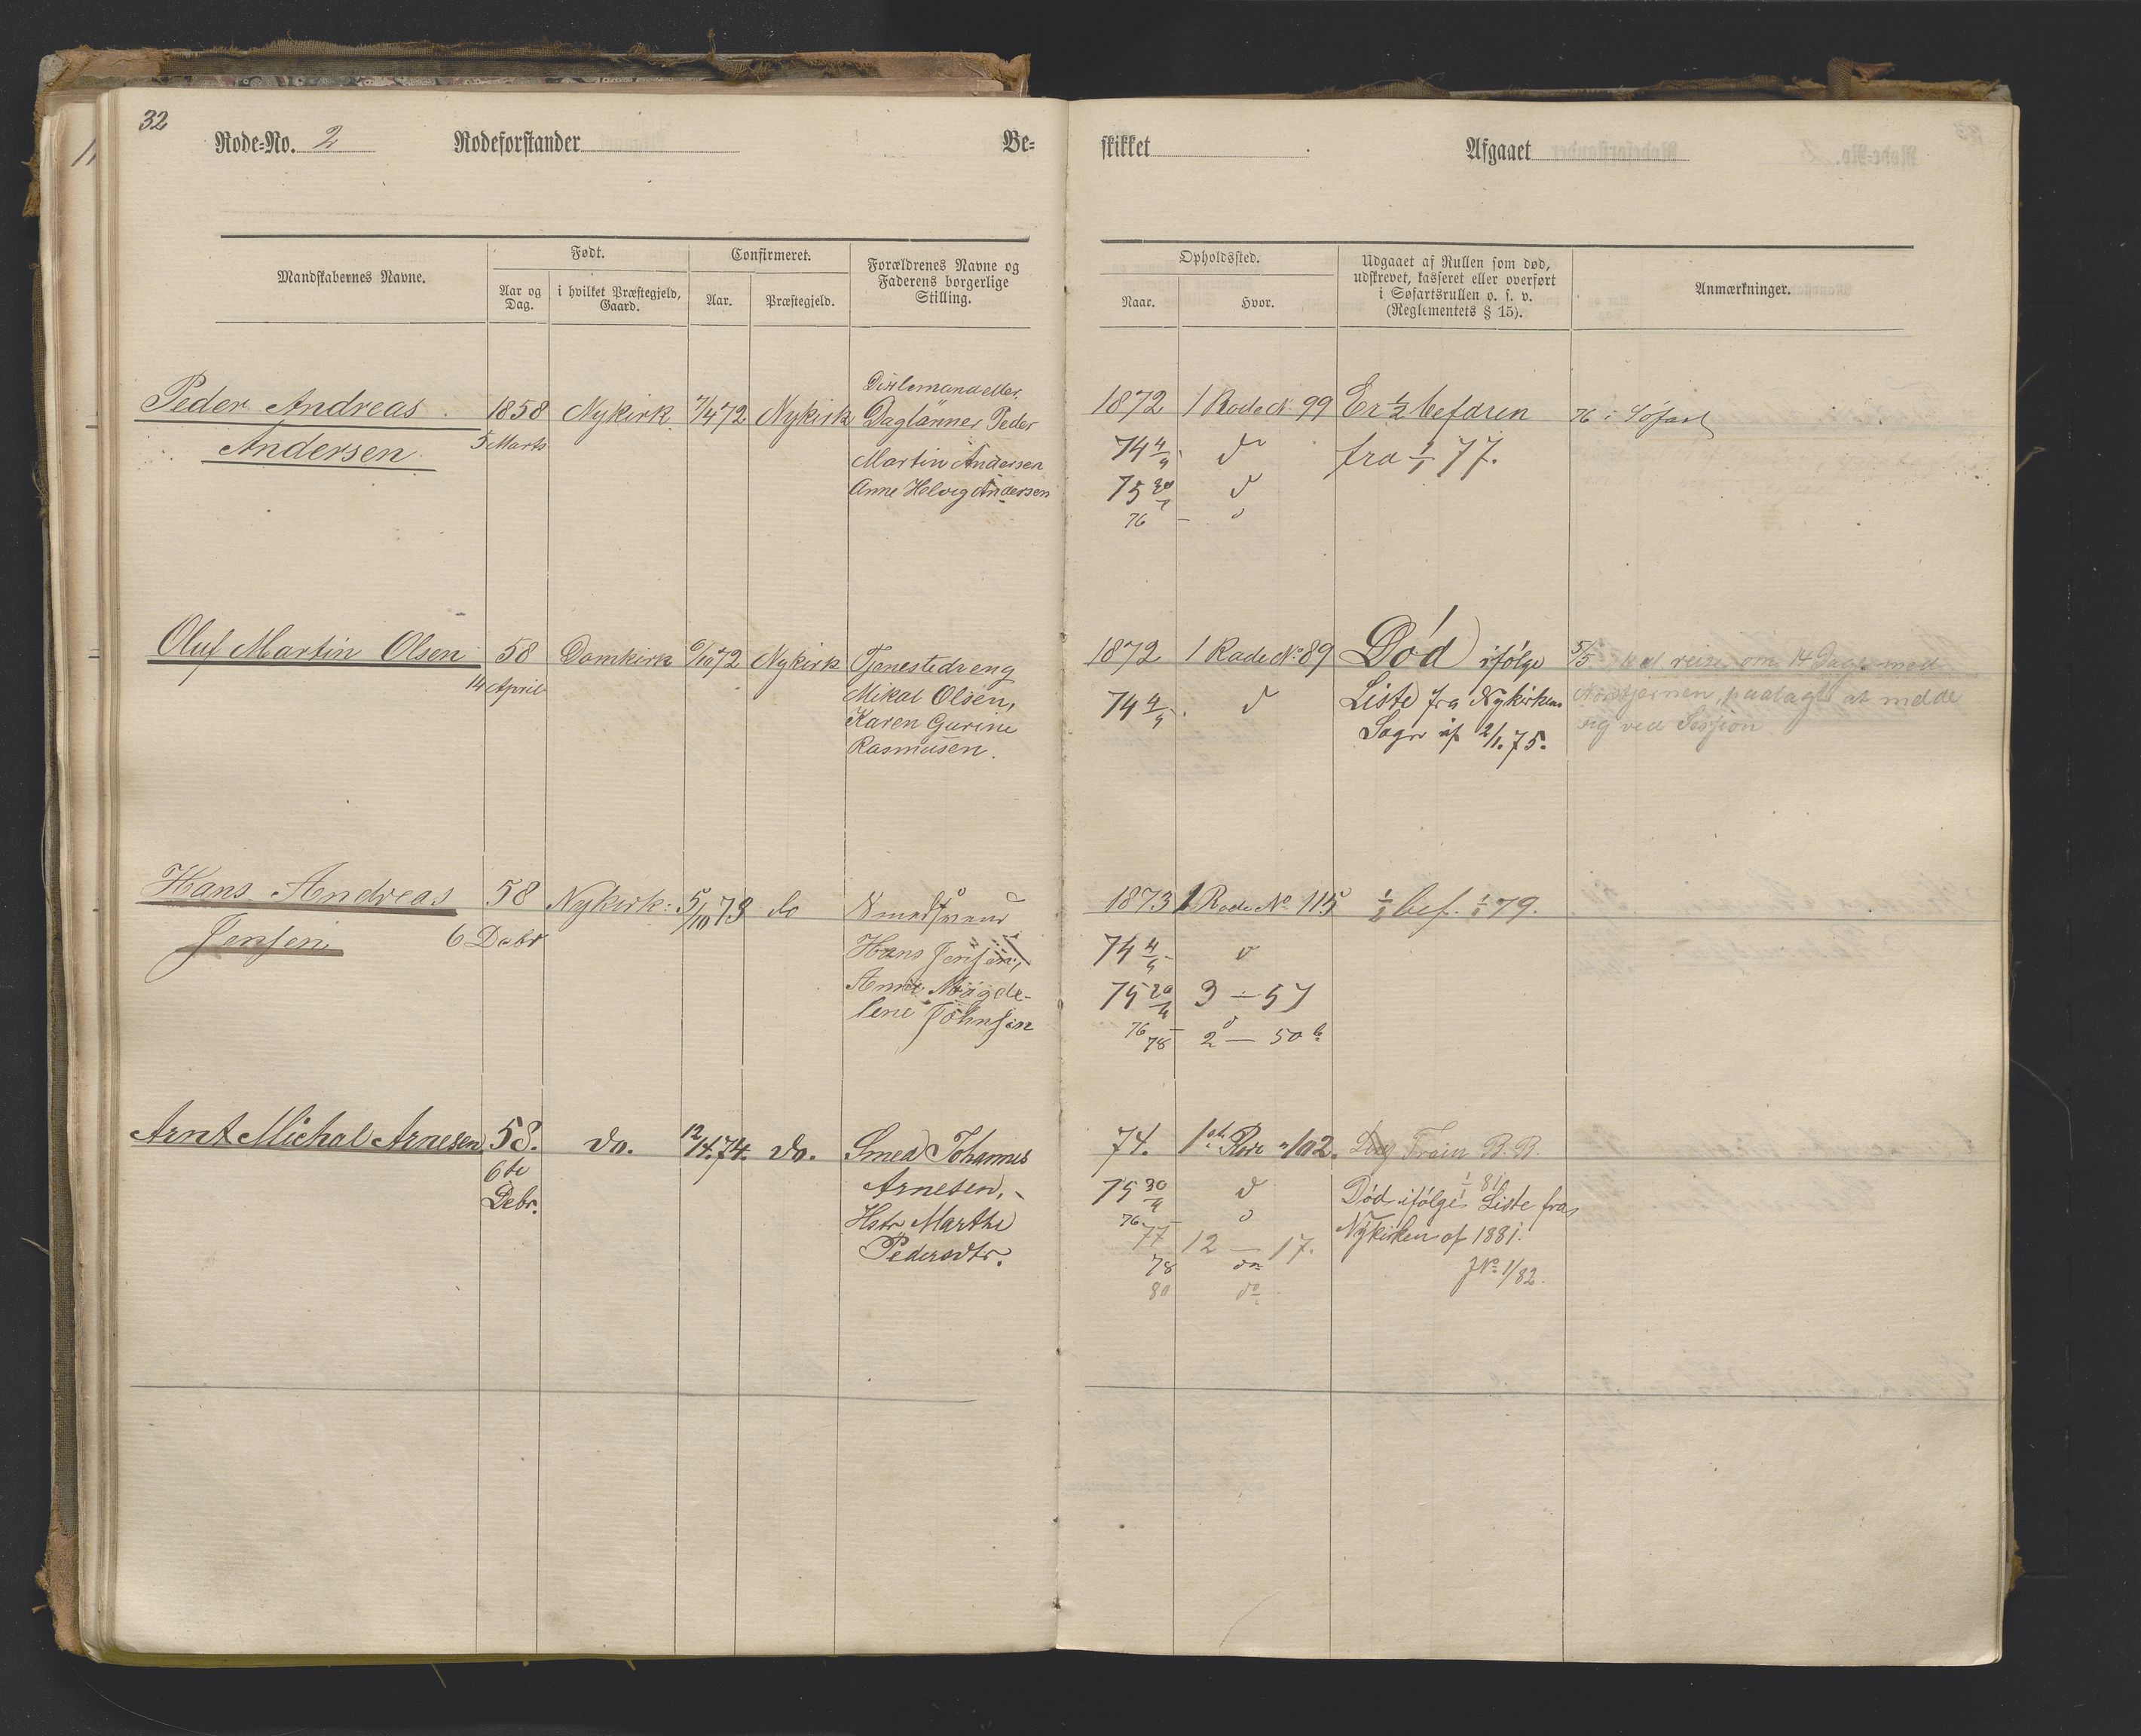 32
Rode-No. 2 Rodeforstander Be-
skikket Afgaaet
Mandskabernes Navne.
Født.
Aar og Dag.
i hvilket Præstegjeld, Gaard.
Confirmeret.
Aar.
Præstegjeld.
Forældrenes Navne og
Faderens borgerlige
Stilling.
Opholdssted.
Naar.
Hvor.
Udgaaet af Rullen som død,
udskrevet, kasseret eller overført
i Søfartsrullen o. s. v.
(Reglementets § 15).
Anmærkninger.
Peder Andreas
Andersen
1858
5 Marts
Nykirk
7/4 72
Nykirk
Daglønner Peder
Martin Andersen
Anne Helvig Andersen
1872 1 Rode N. 99
74 4/4 do
75 20/4 d
76 - d
Er 1/2 befaren
fra 1/1 77.
76 i Søfart
Oluf Martin Olsen
58
14 April
Domkirk
6/10 72
Nykirk
Tjenestedreng
Mikal Olsen,
Karen Gurine
Rasmusen.
1872 1 Rode No 89
74 4/4. d
Død ifølge
Liste fra Nykirken
Sogn af 2/1. 75.
5/5 skal reise om 14 Dage med
Nordstjernen, paalagt at melde
sig ved Session
Hans Andreas
Jensen
58
6 Debr
Nykirk:
5/10 73
do
Hans Jensen,
Anne Magde-
lene Johnsen
1873 1 Rode No 115
74 4/4 d
75 20/4 3 - 57
76 - d
78 2 - 50 b
1/2 bef. 1/1 79.
Arnt Michal Arnesen
58.
6te
Debr.
do.
12/4. 74.
do.
Smed Johannes
Arnesen,
Hstr. Marthe
Pedersdtr.
74. 1ste Rode No 102.
75 30/4 d
76 - d
77 12 - 17.
78 do
80 do
Train B. B.
1/1 81
Død ifølge Liste fra
Nykirken af 1881.
J No 1/82.